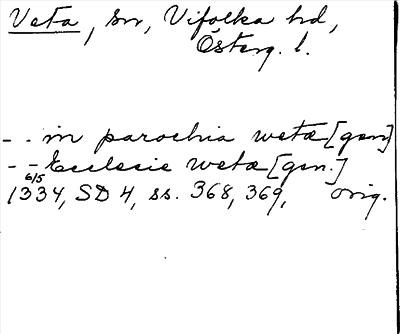 Veta, sn, Vifolka hd,
Österg. l.
- - in parochia wetæ [gen]
- - Ecclesie wetæ [gen.]
6/5
1334, SD 4, ss. 368, 369, orig.